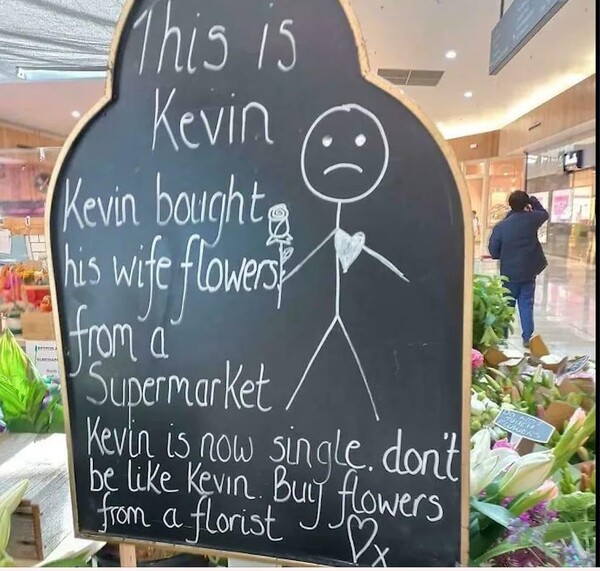 This is
Kevin
Kevin bought
his wife flowers
from a
Supermarket
Kevin is now single. don't
be like Kevin. Buy flowers
from a florist
x